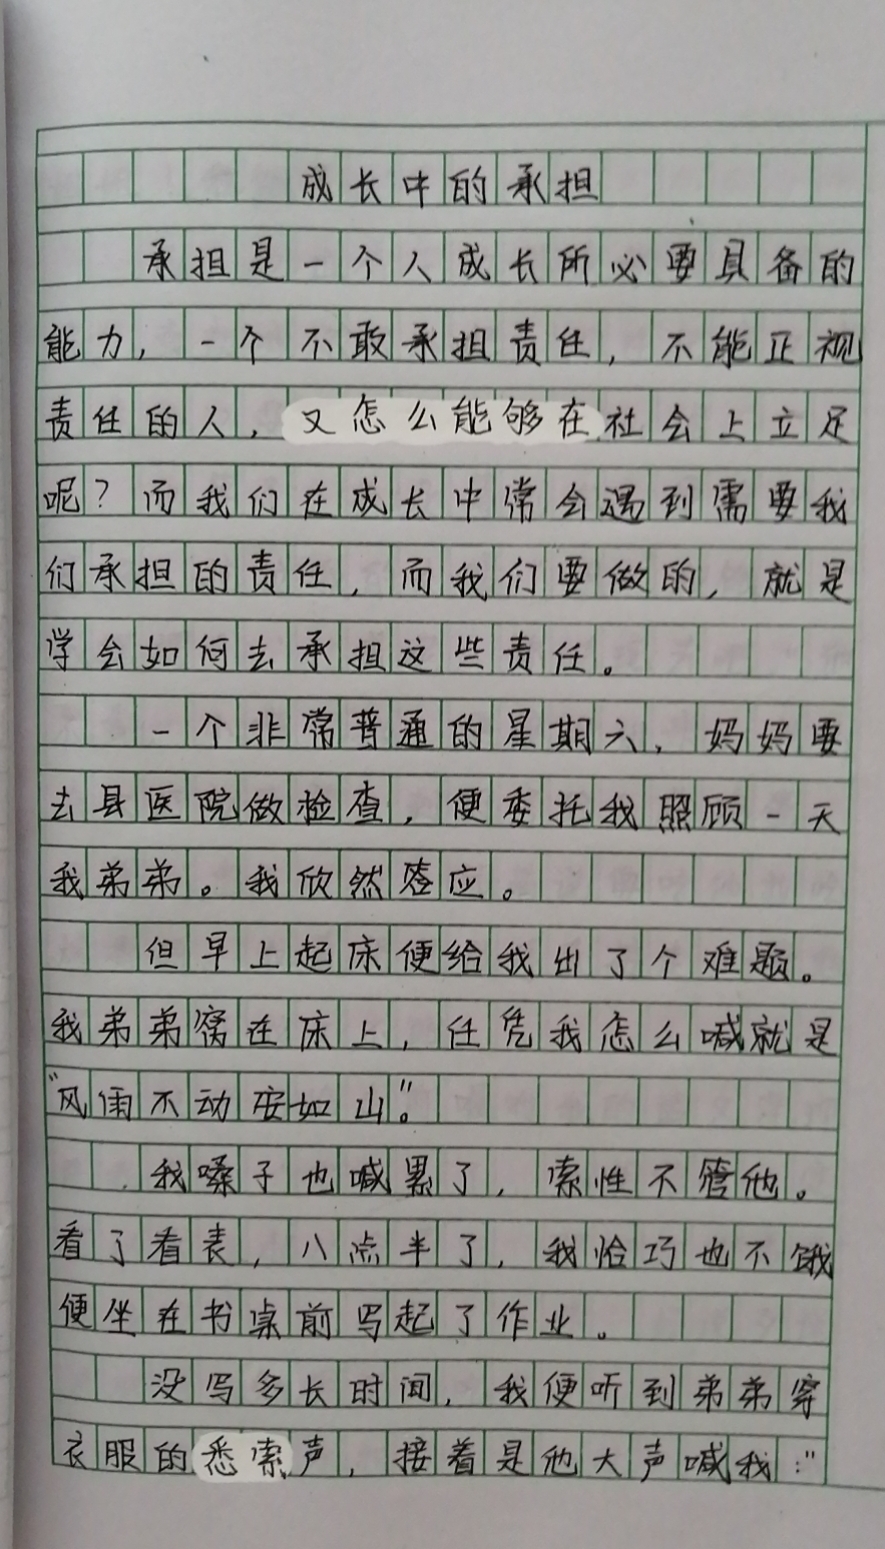 成长中的承担
承担是一个人成长所必要具备的
能力，一个不敢承担责任，不能正视
责任的人，又怎么能够在社会上立足
呢？而我们在成长中常会遇到需要我
们承担的责任，而我们要做的，就是
学会如何去承担这些责任。
一个非常普通的星期六，妈妈要
去县医院做检查，便委托我照顾一天
我弟弟。我欣然答应。
但早上起床便给我出了个难题。
我弟弟窝在床上，任凭我怎么喊就是
“风雨不动安如山”。
我嗓子也喊累了，索性不管他。
看了看表，八点半了，我恰巧也不饿
便坐在书桌前写起了作业。
没写多长时间，我便听到弟弟穿
衣服的悉索声，接着是他大声喊我：“